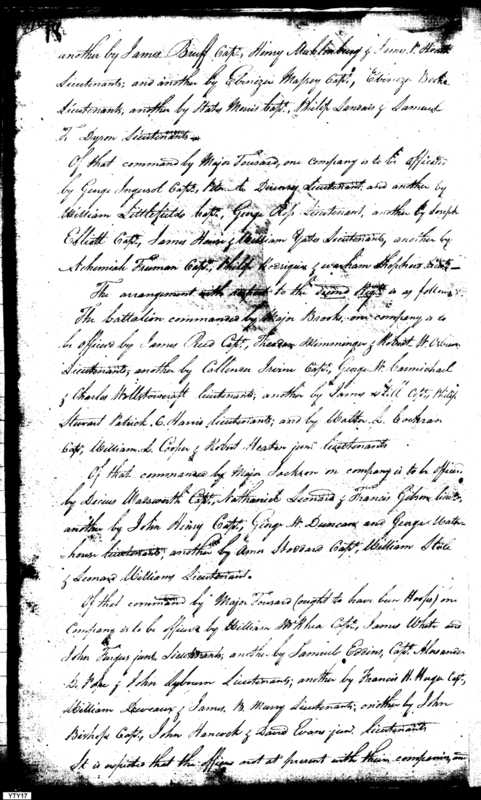 78.
another by James Bruff Capt., Henry Muhlenburg & James P. Heath
Lieutenants; and another by Ebenezer Massey Capt., Ebenezer Beebe
Lieutenants, another by Staats Morris Capt. Philip Landais & Samuel
T. Dyson Lieutenants
Of that command by Major Tousard, one company is to be officered
by George Ingersol Capt., Peter A. Lieutenant, and another by
William Littlefield Capt., George Ross Lieutenant, another by Joseph
Elliott Capt., James House & William Yates Lieutenants, another by
Nehemiah Freeman Capt., Philip Rodrigue &
The arrangement with respect to the second Regt. is as follows
The battalion commanded by Major Brooks, one company is to
be officered by James Reed Capt., Theodore Memminger & Robert W. Osborn
Lieutenants; another by Callender Irvine Capt., George W. Carmichael
& Charles Wollstonecraft lieutenants; another by James Still Capt., Philip
Stewart Patrick C. Harris lieutenants; and by Walter L. Cochran
Capt., William L. Cooper & Robert Heaton junr. lieutenants
Of that commanded by Major Jackson on company is to be officered
by Decius Wadsworth Capt., Nathaniel Leonard & Francis Gibson lieuts.
another by John Henry Capt., George W. Duncan and George Water-
house lieutenants, another by Amos Stoddard Capt., William Steele
& Leonard Williams Lieutenant.
Of that command by Major Tousard (ought to have been Hoops) on
company is to be officered by William McRhea Capt., James White and
John Fergus junr. Lieutenants; another by Samuel Eddins, Capt. Alexander
D. Pope & John Lybourn Lieutenants; another by Francis H. Huger Capt.,
William Deveaux & James B. Many Lieutenants; another by John
Bishop Capt., John Hancock & David Evans junr. lieutenants
It is expected that the officers not at present with their companies, are
YTY17